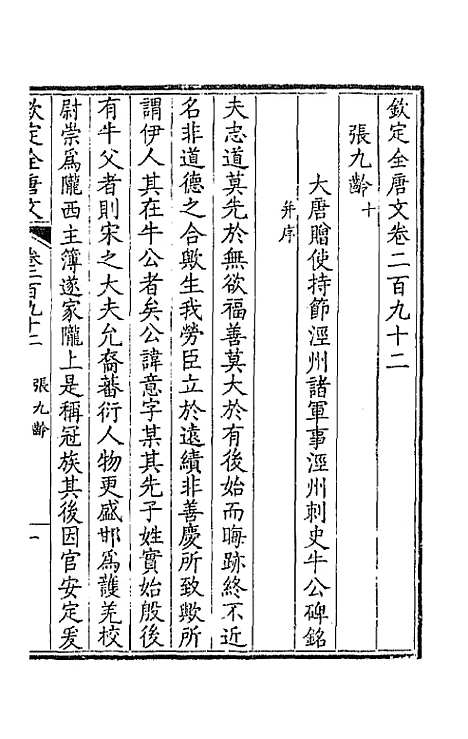 欽定全唐文卷二百九十二
張九齡十
大唐贈使持節涇州諸軍事涇州刺史牛公碑銘
并序
夫志道莫先於無欲福善莫大於有後始而晦跡終不近
名非道德之合歟生我勞臣立於遠績非善慶所致歟所
謂伊人其在牛公者矣公諱意字某其先子姓實始殷後
有牛父者則宋之大夫允裔蕃衍人物更盛邯爲護羌校
尉崇爲隴西主簿遂家隴上是稱冠族其後因官安定爰
欽定全唐文
卷二百九十二
張九齡
一